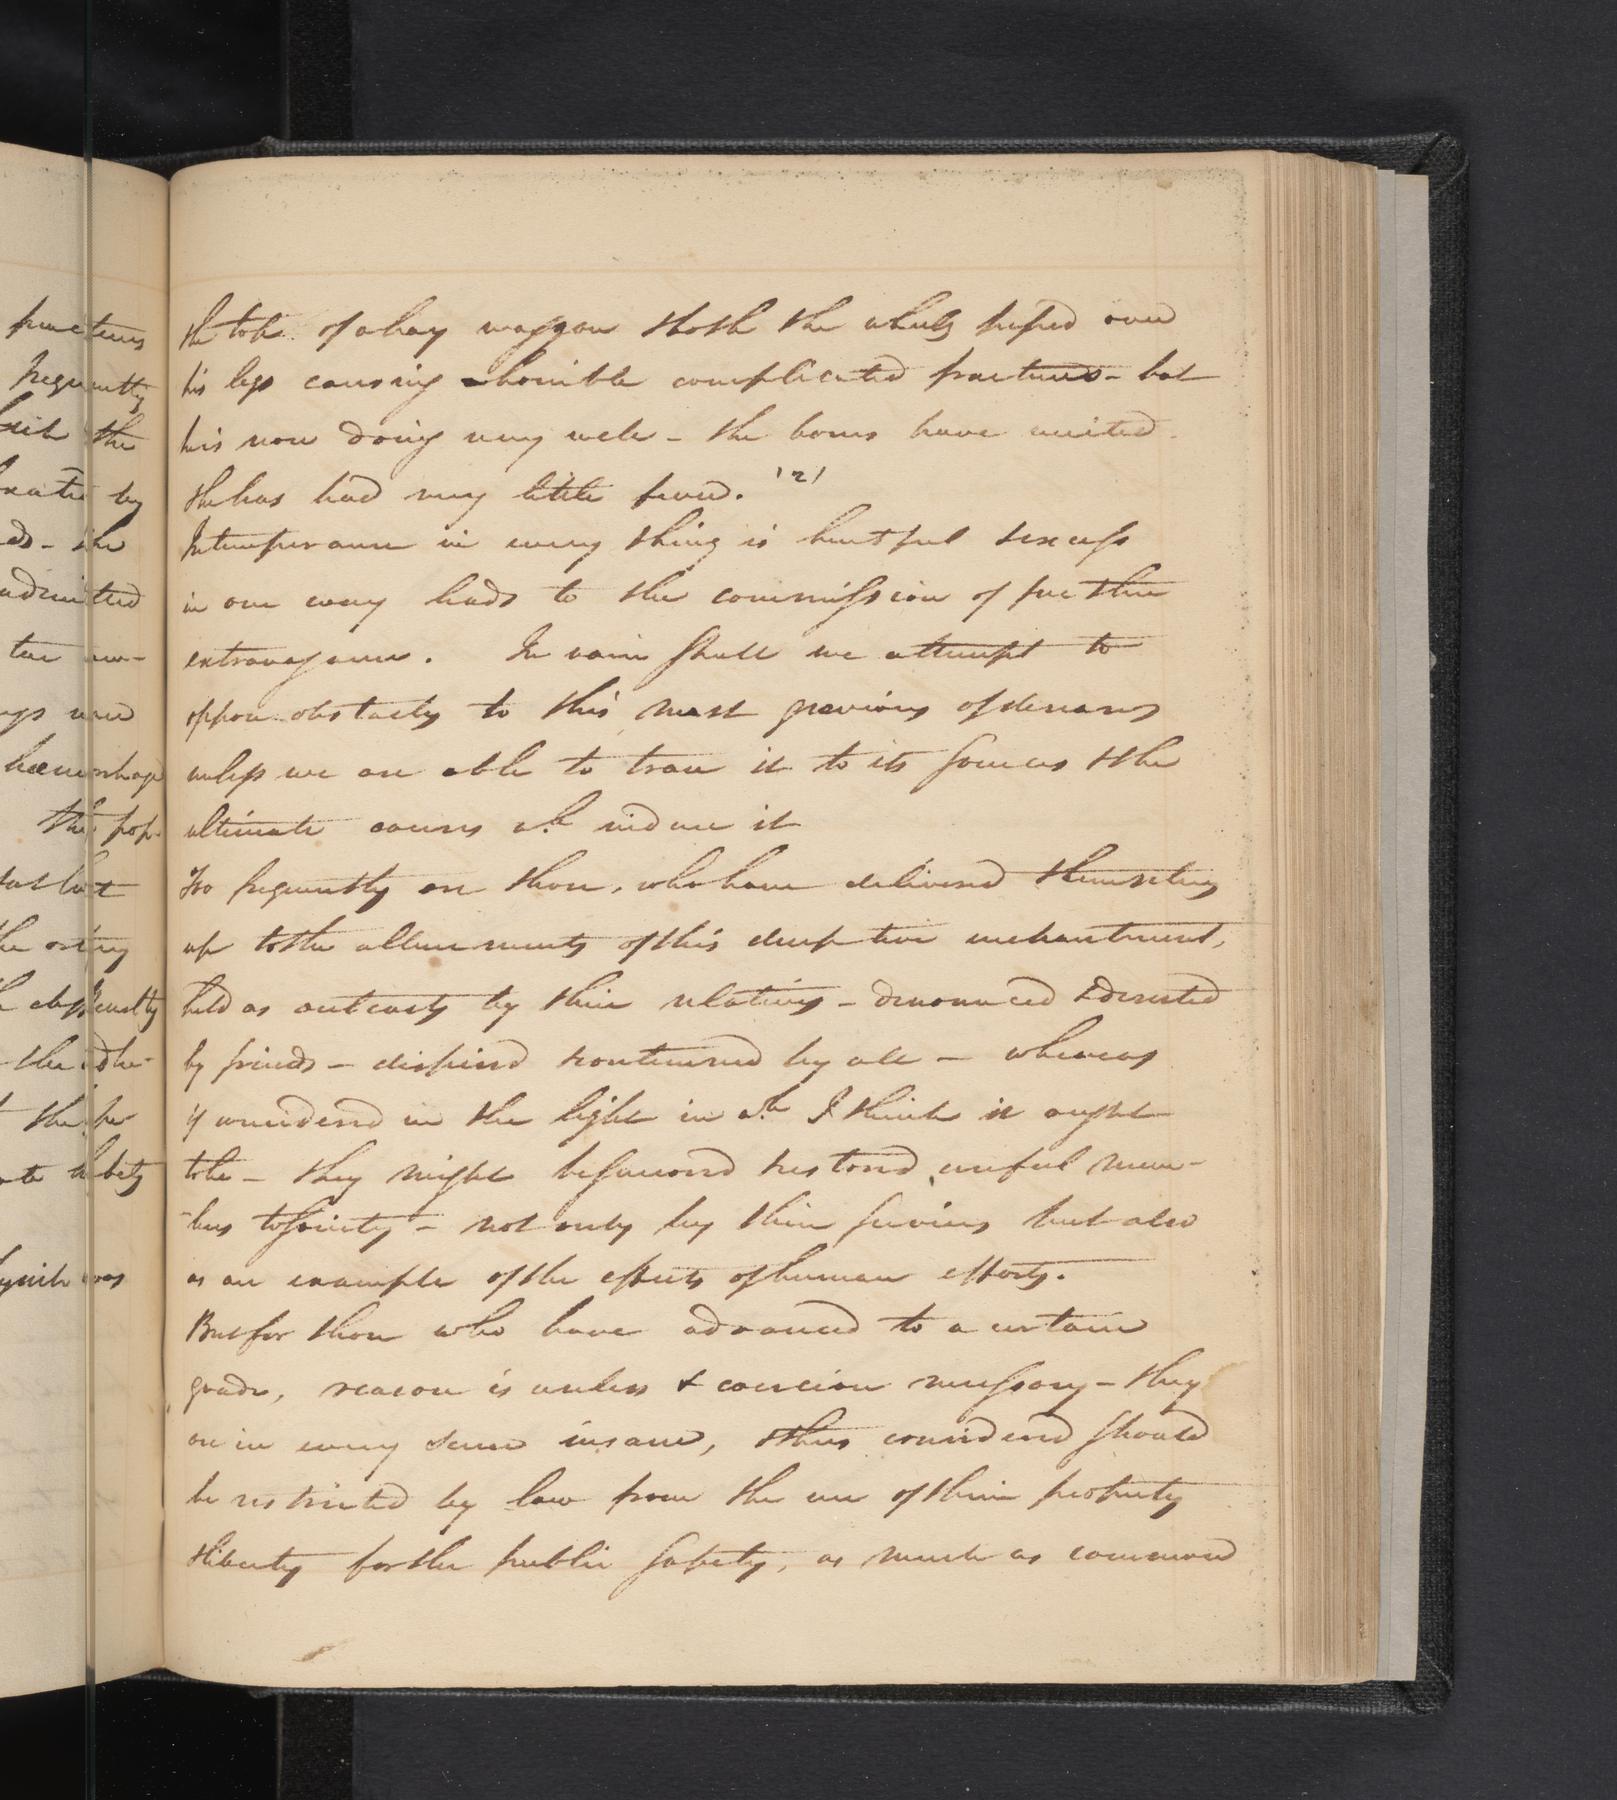 punctures
frequently
the
by
the
admitted
hæmorhage
the pop-
the artery
the
was
the top of a hay waggon & both the wheels passed over
his legs causing a horrible complicated fractures - but
his now doing very well - the bones have united.
& he has had very little fever. '2'
Intemperance in every thing is hurtful & excess
in one way leads to the commission of further
extravagance. In vain shall we attempt to
oppose obstacles to this most grevious of diseases
unless we are able to trace it to its sources & the
ultimate causes wh induce it
Too frequently are those, who have delivered themselves
up to the allurements of this deceptive enchantment,
held as outcasts by their relatives - denounced & deserted
by friends - dispised & contemned by all - whereas
if considered in the light in wh I think it ought
to be - they might be saved & restored useful mem-
-bers to society - not only by their services but also
as an example of the effects of human efforts.
But for those who have advanced to a certain
grade, reason is useless & coercion necessary - they
are in every sense insane, & thus considered should
be restricted by law from the use of their property
& liberty for the public safety, as much as common